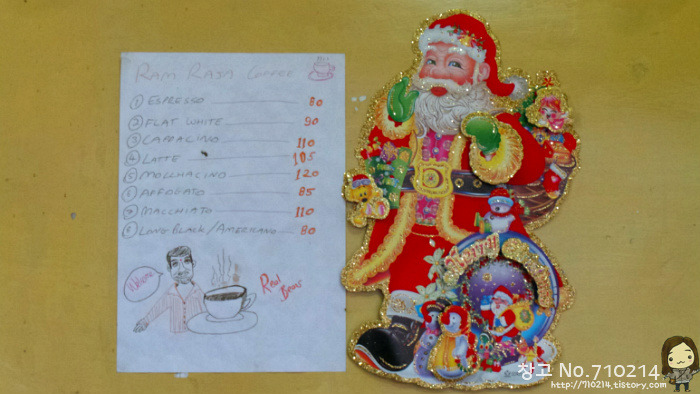 RAM RAJA COFFEE
① ESPRESSO 80
② FLAT WHITE 90
③ CAPPACINO 110
④ LATTE 105
⑤ MOCCHACINO 120
AFFOGATO 85
MACCHIATO 110
⑧ LONG BLACK / AMERICANO 80
Real
Bean
창고 No.710214
http://710214.tistory.com/